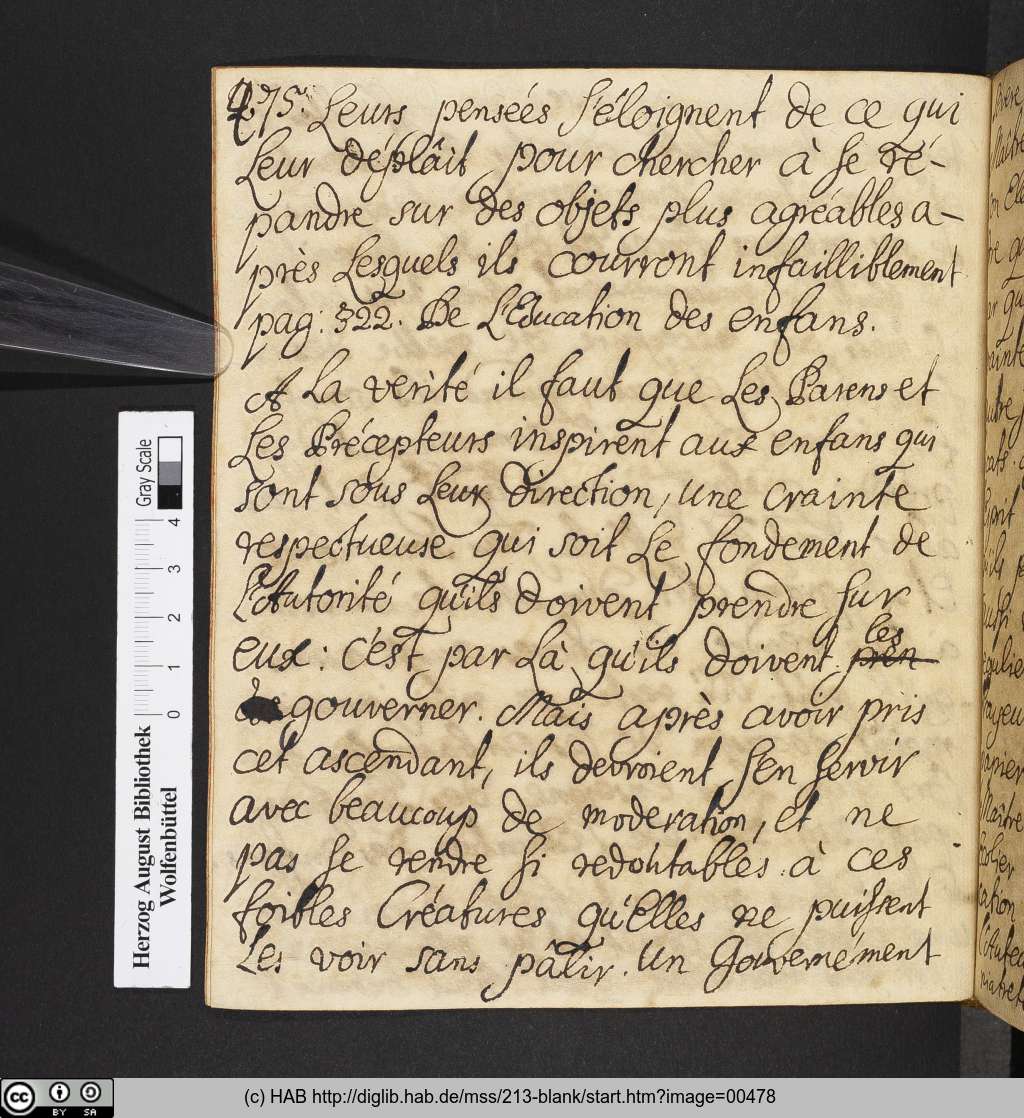 475. Leurs pensées s'éloignent de ce qui
Leur déplâit pour chercher à se ré-
pandre sur des objets plus agréables a-
près Lesquels ils courront infailliblement
pag. 322. De L'Education des enfans.
A La verité il faut que Les Parens et
Les Précepteurs inspirent aux enfans qui
sont sous Leur direction, une crainte
respectueuse qui soit Le fondement de
L'Autorité qu'ils doivent prendre sur
eux : c'est par Là qu'ils doivent les
gouverner. Mais après avoir pris
cet ascendant, ils devroient s'en servir
avec beaucoup de moderation, et ne
pas se rendre si redoûtables à ces
foibles Créatures qu'Elles ne puissent
Les voir sans pâlir. Un Gouvernement
Herzog August Bibliothek
Wolfenbüttel
Gray Scale
0 1 2 3 4
cc BY SA
(c) HAB http://diglib.hab.de/mss/213-blank/start.htm?image=00478